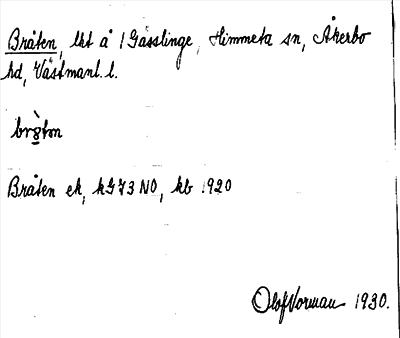 Bråten, lht å 1 Gässlinge, Himmeta sn, Åkerbo
hd, Västmanl. l.
brå̀tən
Bråten ek, kG 73 NO, kb 1920
Olof Norman 1930.